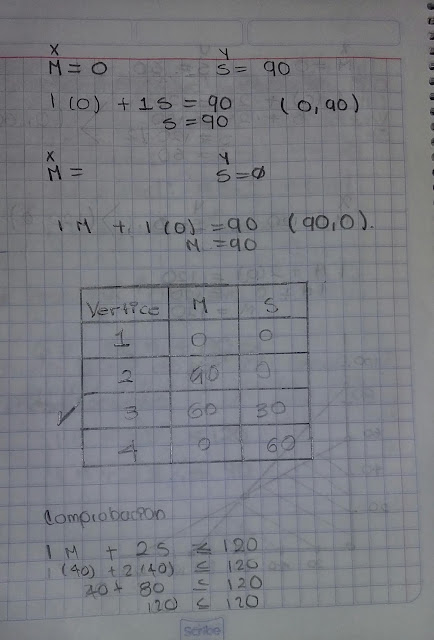 X Y
M = 0 S = 90
1(0) + 1S = 90 (0,90)
S = 90
X Y
M = S = 0
1M + 1(0) = 90 (90,0).
M = 90
Vertice M S
1 0 0
2 90 0
3 60 30
4 0 60
Comprobacion
1M + 2S ≤ 120
1(40) + 2(40) ≤ 120
40 + 80 ≤ 120
120 ≤ 120
scribe